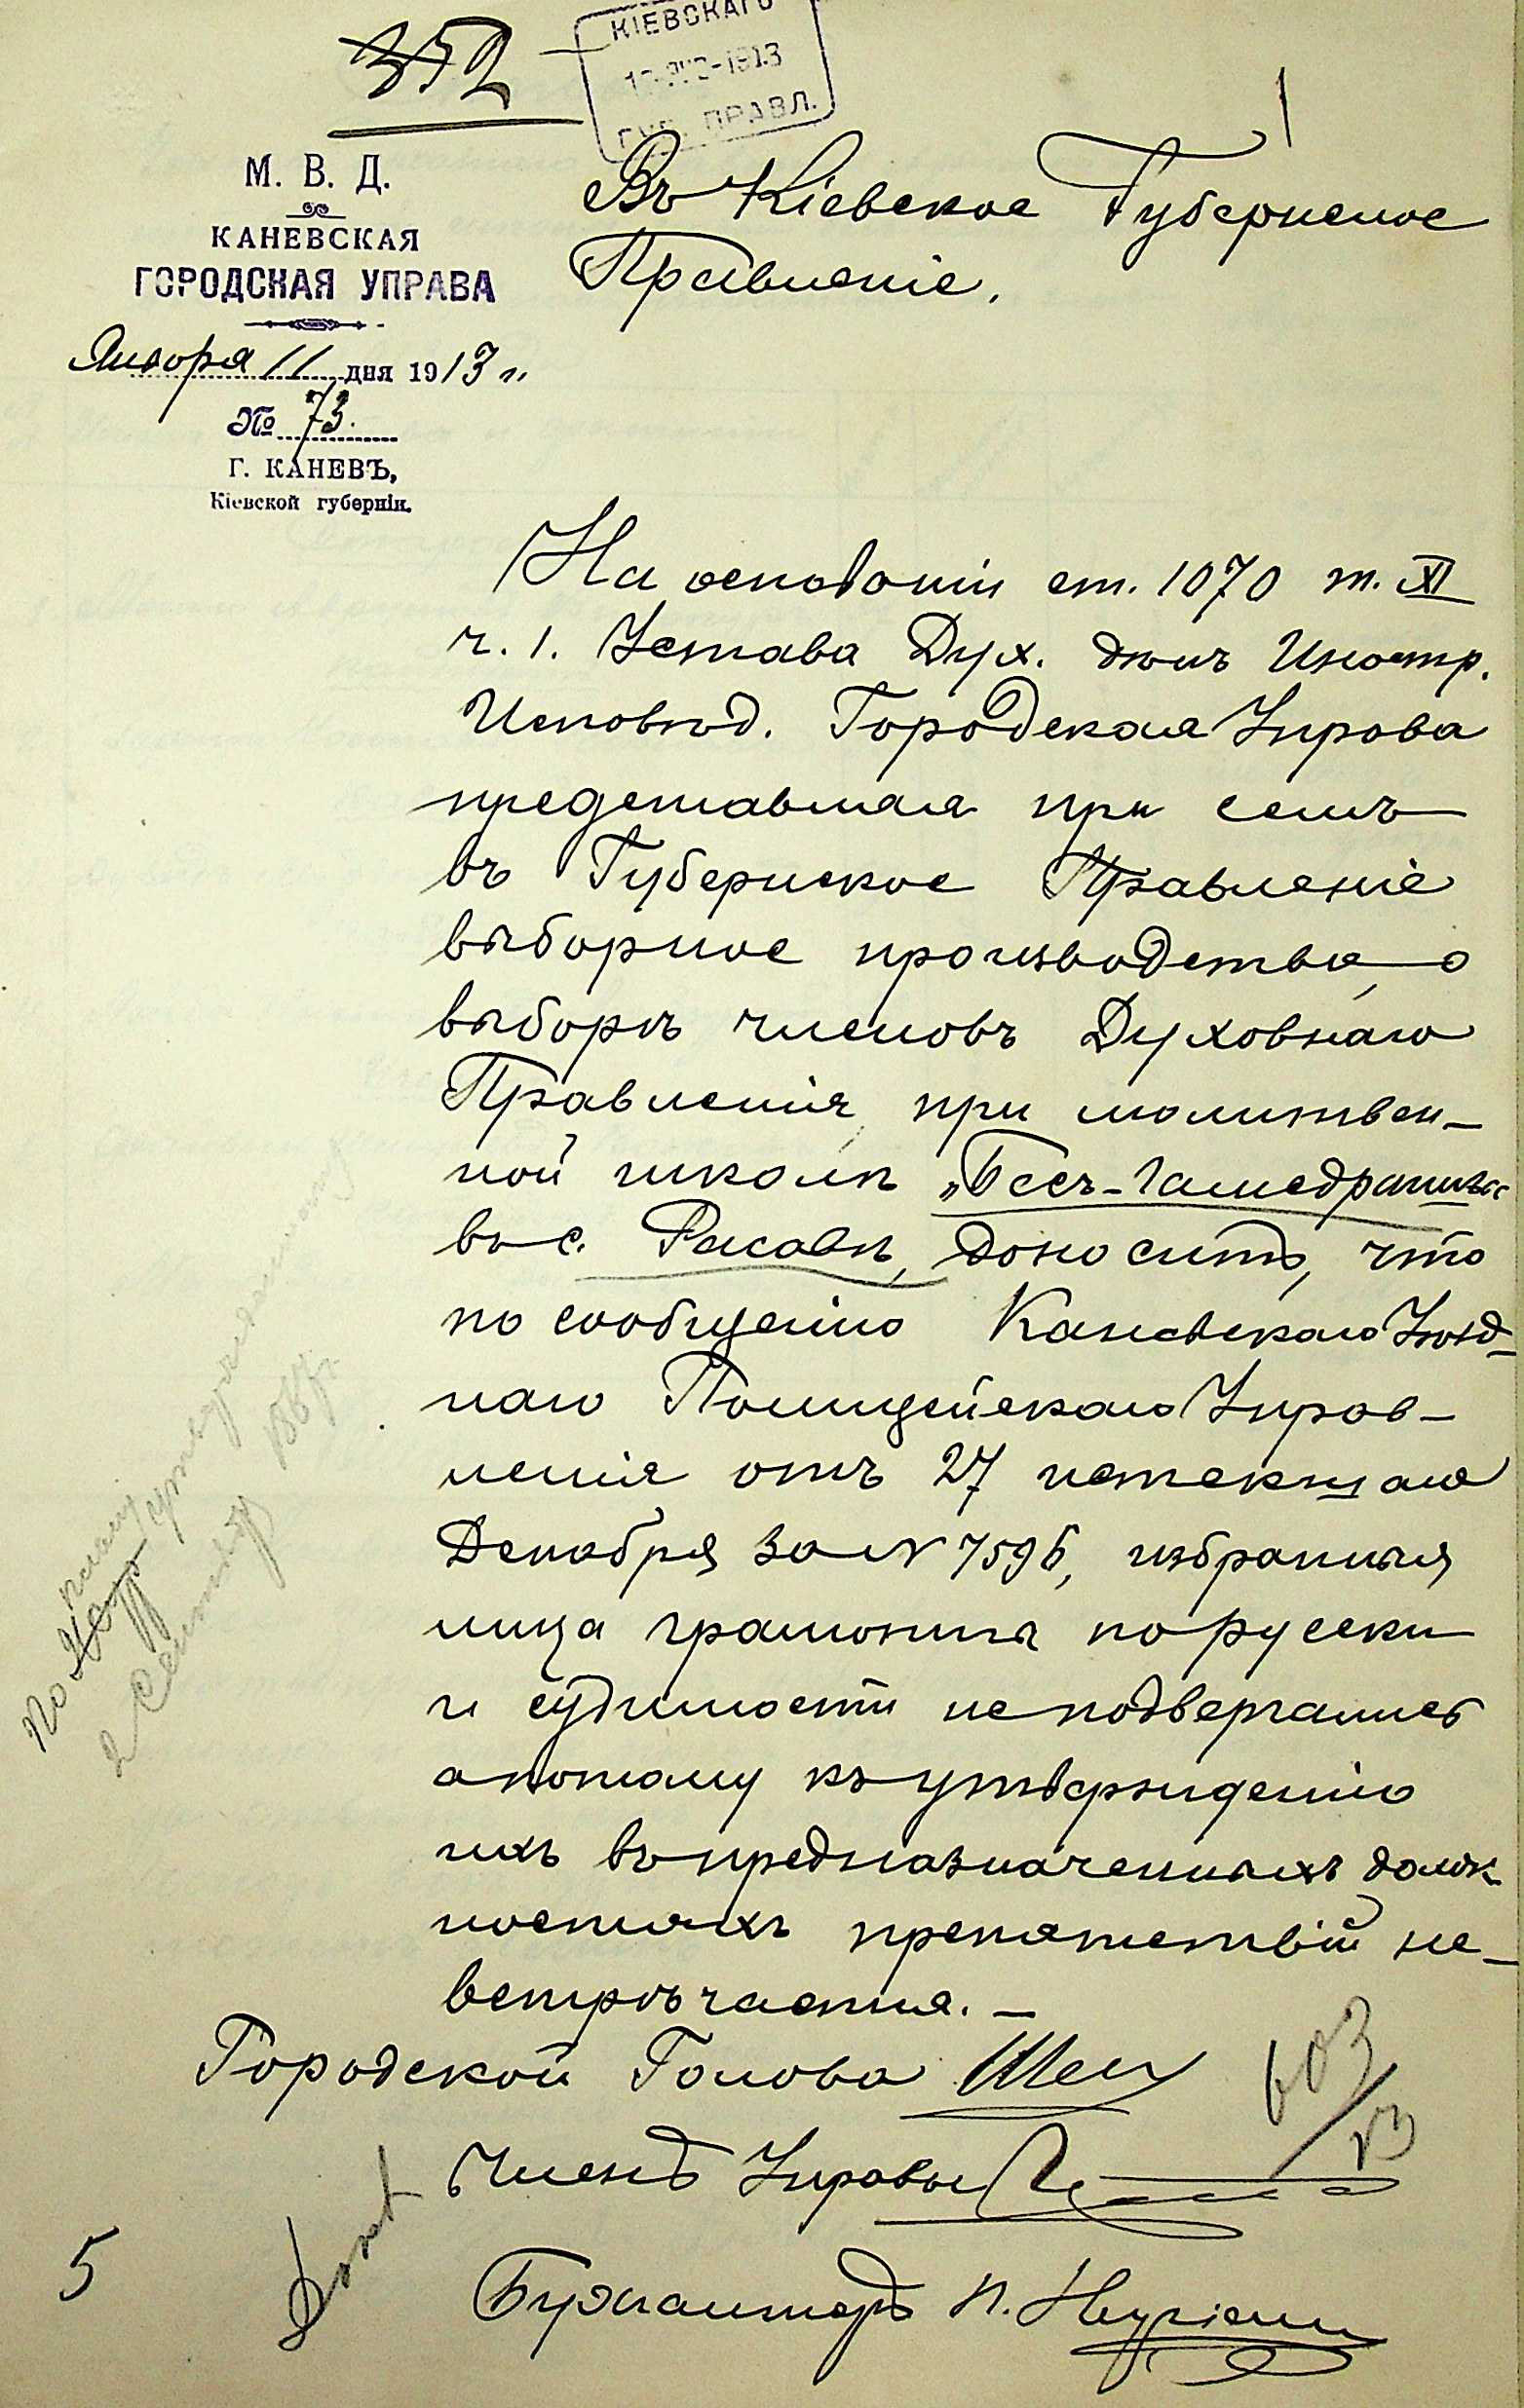 352
КІЕВСКАГО
1913
ГУБ. ПРАВЛ.
1
М. В. Д.
КАНЕВСКАЯ
ГОРОДСКАЯ УПРАВА
Января 11 дня 1913 г.
№ 73.
Г. КАНЕВЪ,
Кіевской губерніи.
Въ Кіевское Губернское
Правленіе.
На основаніи ст. 1070 т. XI
ч. 1. Устава Дух. дѣлъ Иностр.
Исповѣд. Городская Управа
представляя при семъ
въ Губернское Правленіе
выборное производство о
выборѣ членовъ Духовнаго
Правленія при молитвен-
ной школѣ „Бесъ-Гамедрашъ“
въ с. Расавѣ, доноситъ, что
по сообщенію Каневскаго Уѣзд-
наго Полицейскаго Управ-
ленія отъ 27 истекшаго
Декабря за № 7596, избранныя
лица грамотны по русски
и судимости не подвергались
а потому къ утвержденію
ихъ въ предназначенныхъ долж-
ностяхъ препятствій не-
встрѣчается. –
Городской Голова
Членъ Управы
Бухгалтеръ П.
603/13
5